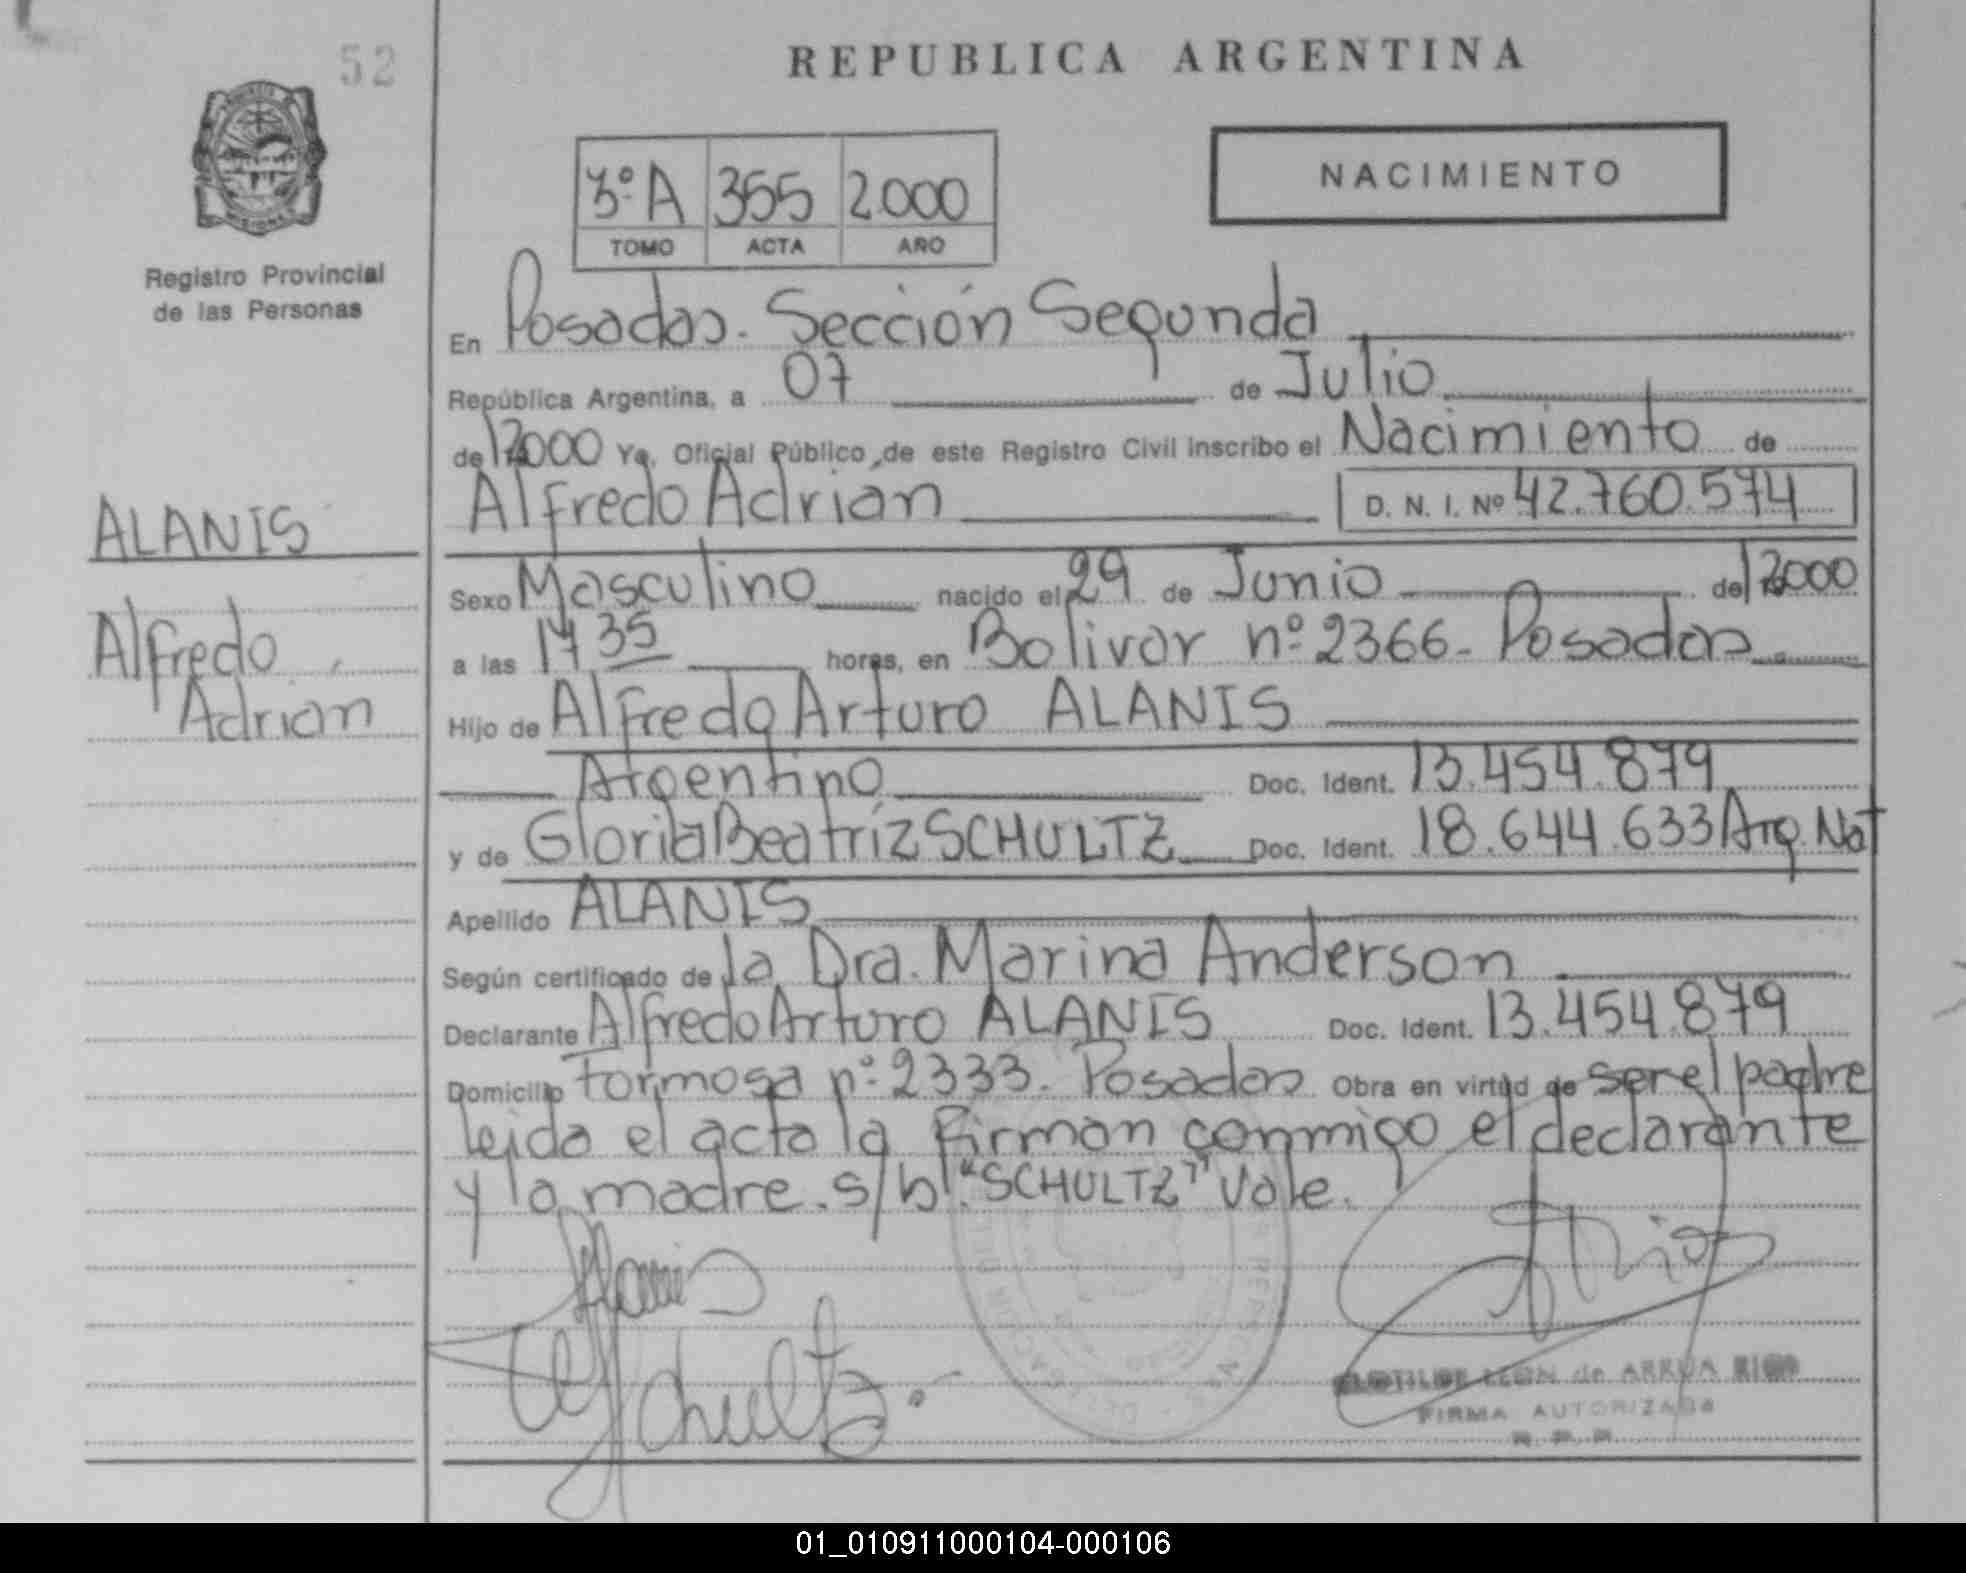 52
REPUBLICA ARGENTINA
3º A 355 2.000
TOMO ACTA AÑO
NACIMIENTO
Registro Provincial
de las Personas
En Posadas. Sección Segunda
República Argentina, a 07 de Julio
de 2000 Yo, Oficial Público de este Registro Civil inscribo el Nacimiento de
Alfredo Adrian D. N. I. Nº 42.760.574
ALANIS
Sexo Masculino nacido el 29 de Junio de 2000
Alfredo
Adrian
a las 17 35 horas, en Bolivar nº 2366 - Posadas
Hijo de Alfredo Arturo ALANIS
Argentino Doc. Ident. 13.454.879
y de Gloria Beatríz SCHULTZ Doc. Ident. 18.644.633 Arg. Nat
Apellido ALANIS
Según certificado de la Dra. Marina Anderson
Declarante Alfredo Arturo ALANIS Doc. Ident. 13.454.879
Domicilio Formosa nº 2333. Posadas Obra en virtud de ser el padre
leida el acta la firman conmigo el declarante
y la madre. s/b: "SCHULTZ" Vale.
Alanis
Schultz
CLOTILDE LEON de ARRUA RIOS
FIRMA AUTORIZADA
R. P. P.
01_010911000104-000106